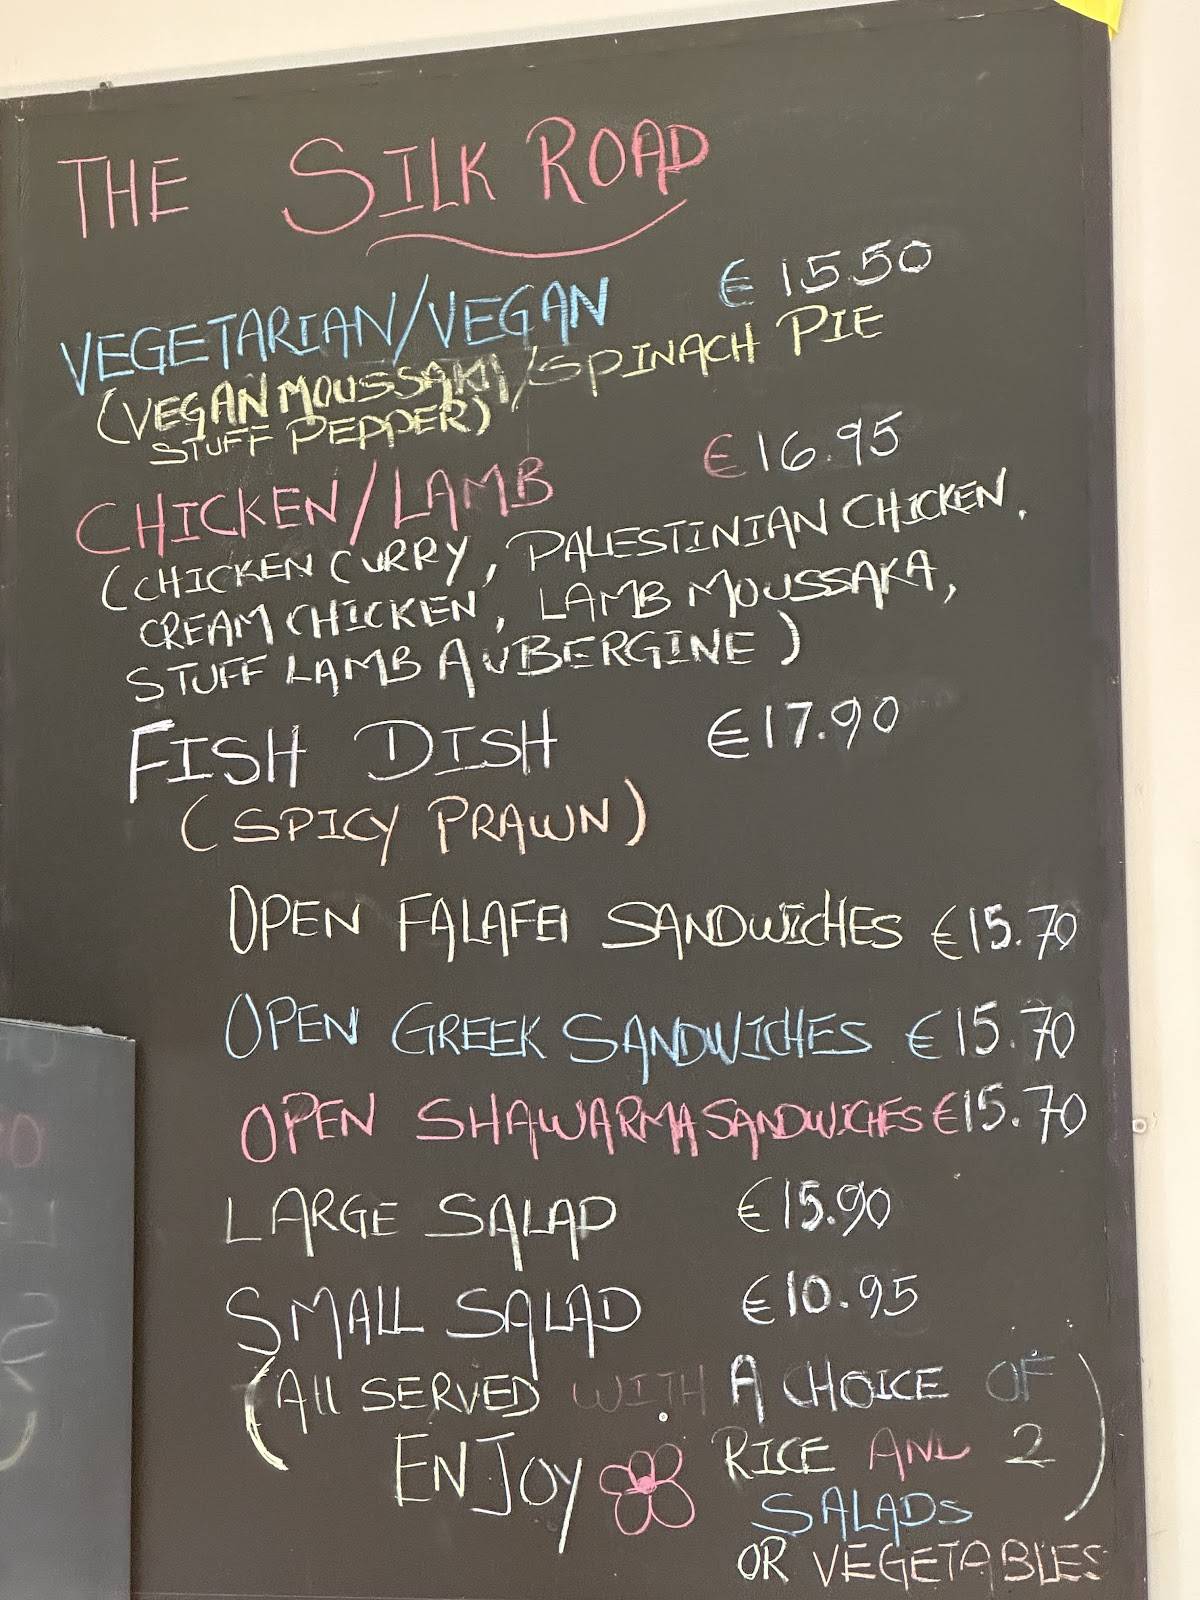 THE SILK ROAD
VEGETARIAN/VEGAN € 15.50
(VEGAN MOUSSAKA/SPINACH PIE
STUFF PEPPER)
CHICKEN/LAMB €16.95
(CHICKEN CURRY, PALESTINIAN CHICKEN,
CREAM CHICKEN, LAMB MOUSSAKA,
STUFF LAMB AUBERGINE)
FISH DISH €17.90
(SPICY PRAWN)
OPEN FALAFEl SANDWICHES €15.70
OPEN GREEK SANDWICHES €15.70
OPEN SHAWARMA SANDWICHES €15.70
LARGE SALAD €15.90
SMALL SALAD €10.95
(All SERVED WITH A CHOICE OF
ENJOY RICE AND 2)
SALADS
OR VEGETABLES